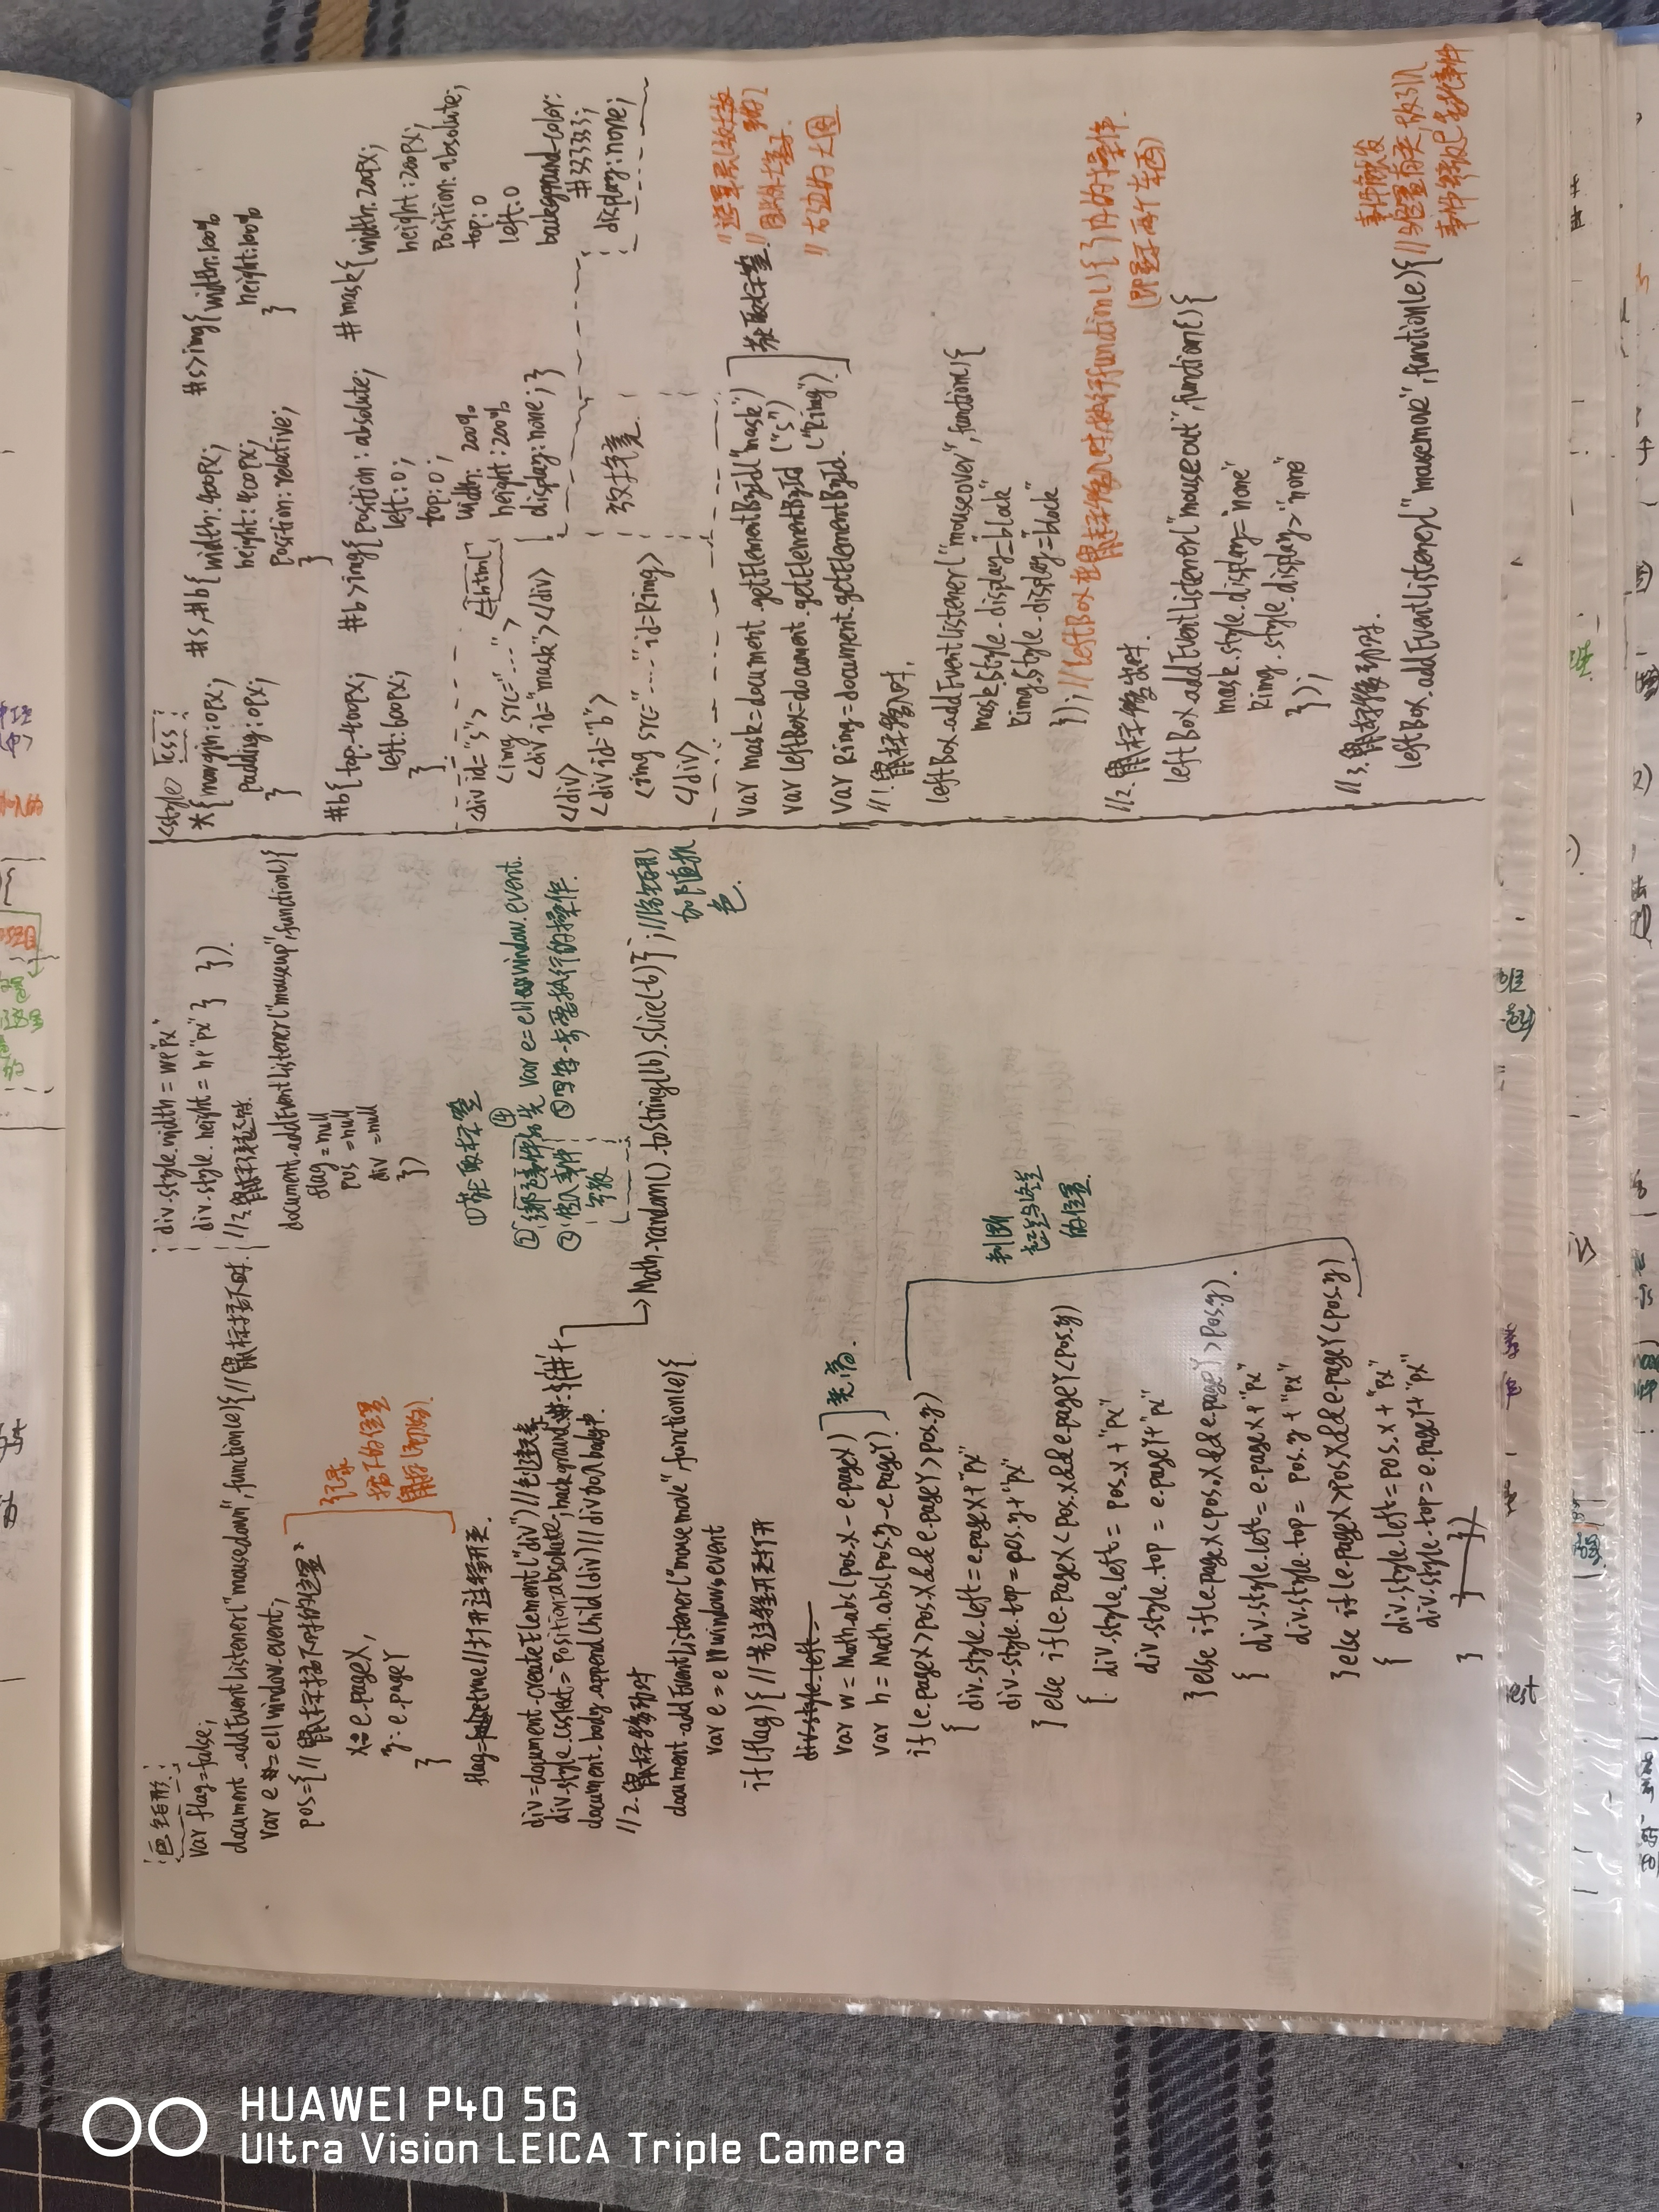 画矩形:
var flag=false;
document.addEventListener("mousedown",function(e){//鼠标按下时.
var e=e||window.event;
pos={//鼠标按下时的位置
x:e.pageX,
y:e.pageY
}
记录
按下的位置
flag=true//打开过程开关.
div=document.createElement("div")//创建元素
div.style.cssText=`Position:absolute;background:#${
document.body.appendChild(div)//
//2.鼠标移动时
document.addEventListener("mousemove",function(e){
var e=e||window.event
if(flag){//若过程开关打开
div.style.left=
var w=Math.abs(pos.x-e.pageX)
var h=Math.abs(pos.y-e.pageY)
宽高.
if(e.pageX>pos.X&&e.pageY>pos.y)
{ div.style.left=e.pageX+"px"
div.style.top=pos.y+"px"
}else if(e.pageX<pos.x&&e.pageY<pos.y)
{ div.style.left=pos.x+"px"
div.style.top=e.pageY+"px"
}else if(e.pageX<pos.x&&e.pageY>pos.y).
{ div.style.left=e.pageX+"px"
div.style.top=pos.y+"px"
}else if(e.pageX>pos.X&&e.pageY<pos.y)
{ div.style.left=pos.x+"px"
div.style.top=e.pageY+"px"
}
判断
起点与终点
的位置.
div.style.width=w+"px"
div.style.height=h+"px" } }).
//3.鼠标抬起时.
document.addEventListener("mouseup",function(){
flag=null
pos=null
div=null
})
①获取标签
②绑定事件
③传入事件
参数
④先var e=e||window.event.
⑤写每一步需要执行的操作.
Math.random().toString(16).slice(-6)};//给矩形
加随机
色.
<style> css:
*{margin:0px;
padding:0px;
}
#s,#b{width:400px;
height:400px;
Position:relative;
}
#s>img{width:100%
height:100%
}
#b{top:-400px;
left:600px;
}
#b>img{position:absolute;
left:0;
top:0;
width:200%
height:200%
display:none;}
#mask{width:200px;
height:200px;
Position:absolute;
top:0
left:0
background-color:
#333333;
display:none;
html
<div id="s">
<img src="....">
<div id="mask"></div>
</div>
<div id="b">
<img src="....."id=Rimg>
</div>
放大镜.
var mask=document.getElementById("mask")
var leftBox=document.getElementById("s")
var Rimg=document.getElementById("Rimg").
获取标签.
//右边的大图
//1.鼠标移入时.
leftBox.addEventListener("mouseover",function(){
mask.style.display="block"
Rimg.style.display="block"
});//leftBox在鼠标移入时执行function(){}内的操作.
(即显示两个东西)
//2.鼠标移出时.
leftBox.addEventListener("mouseout",function(){
mask.style.display="none"
Rimg.style.display="none"
});
//3.鼠标移动时.
leftBox.addEventListener("mousemove",function(e){//与位置有关,故引入
事件触发
HUAWEI P40 5G
Ultra Vision LEICA Triple Camera